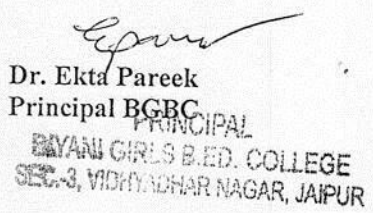 Dr. Ekta Pareek
Principal BGBC
PRINCIPAL
BIYANI GIRLS B.ED. COLLEGE
SEC.-3, VIDHYADHAR NAGAR, JAIPUR